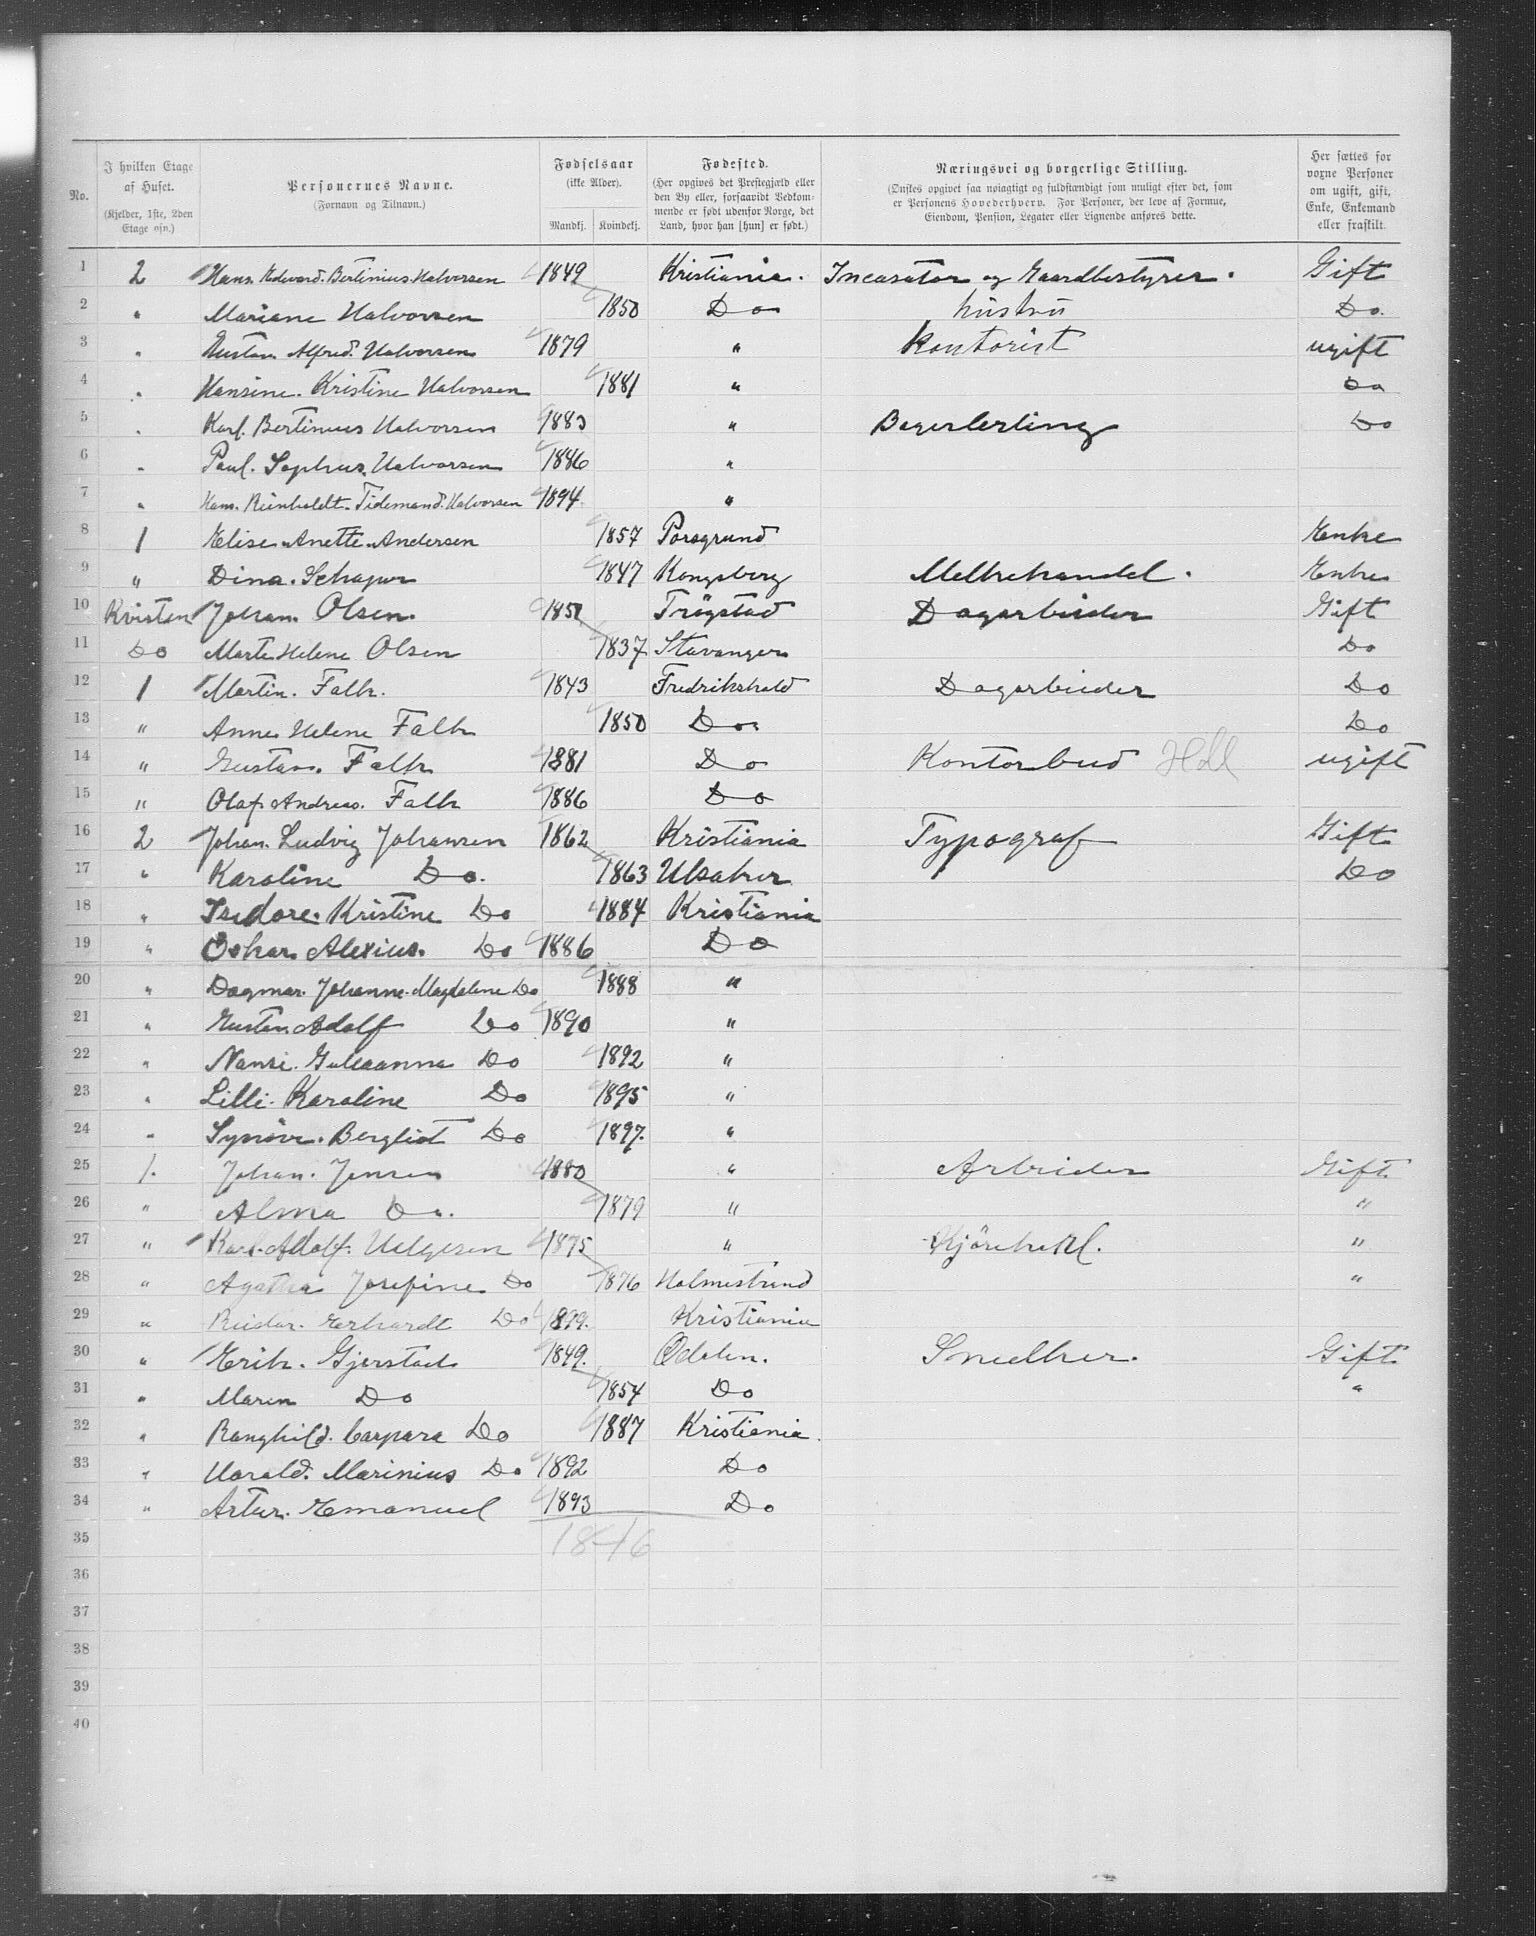 No. I hvilken Etage af Huset. (Kjelder, 1ste, 2den Etage osv.) Personernes Navne. (Fornavn og Tilnavn.) Fødselsaar (ikke Alder). Mandkj. Kvindekj. Fødested. (Her opgives det Prestegjæld eller den By eller, forsaavidt Vedkommende er født udenfor Norge, det Land, hvor han [hun] er født.) Næringsvei og borgerlige Stilling. (Ønskes opgivet saa nøiagtigt og fuldstændigt som muligt efter det, som er Personens Hovederhverv. For Personer, der leve af Formue, Eiendom, Pension, Legater eller Lignende anføres dette.) Her sættes for voxne Personer om ugift, gift, Enke, Enkemand eller fraskilt.
1 2 Hans Edevard Bertinius Halvorsen 1849 Kristiania. Incasator og Gaardbestyrer. Gift
2 " Mariane Halvorsen 1850 Do hustru Do.
3 " Gustav Alfred Halvorsen 1879 " Kontorist ugift
4 " Hansine Kristine Halvorsen 1881 " Do
5 " Karl Bertinius Halvorsen 1883 " Bagerlerling Do
6 " Paul Sophus Halvorsen 1886 "
7 " Hans Reinholdt Tidemand Halvorsen 1894 "
8 1 Elise Anette Andersen 1857 Porsgrund Enke
9 " Dina Kongsberg 1847 Melkehandel. Enke
10 Kvisten Johan Olsen 1851 Trøgstad Dagarbeider Gift
11 Do Marte Helene Olsen 1837 Stavanger Do
12 1 Martin Falk. 1843 Fredrikshald Dagarbeider Do
13 " Anne Helene Falk 1850 Do Do
14 " Gustav Falk 1881 Do Kontorbud ugift
15 " Olaf Andreas Falk 1886 Do
16 2 Johan Ludvig Johansen 1862 Kristiania Typograf Gift
17 " Karoline Do. 1863 Ulsaker Do
18 " Isidore Kristine Do 1884 Kristiania
19 " Oskar Alexius Do 1886 Do
20 " Dagmar Johanne Magdalene Do 1888 "
21 " Gustav Adolf Do 1890 "
22 " Nansi Do 1892 "
23 " Lilli Karoline Do 1895 "
24 " Synøve Bergliot Do 1897. "
25 1. Johan Jensen 1880 " Arbeider Gift.
26 " Alma Do. 1879 " "
27 " Karl Adolf Helgesen 1875 " "
28 " Agatha Josefine Do 1876 Holmestrand "
29 " Reidar Erhardt Do 1899. Kristiania
30 " Erik Gjerstad 1849. Odalen. Snedker. Gift
31 " Maren Do 1854 Do "
32 " Ranghild Caspara Do 1887 Kristiania.
33 " Harald Marinius Do 1892 Do
34 " Artur Emanuel 1893 Do
35 18 16
36
37
38
39
40